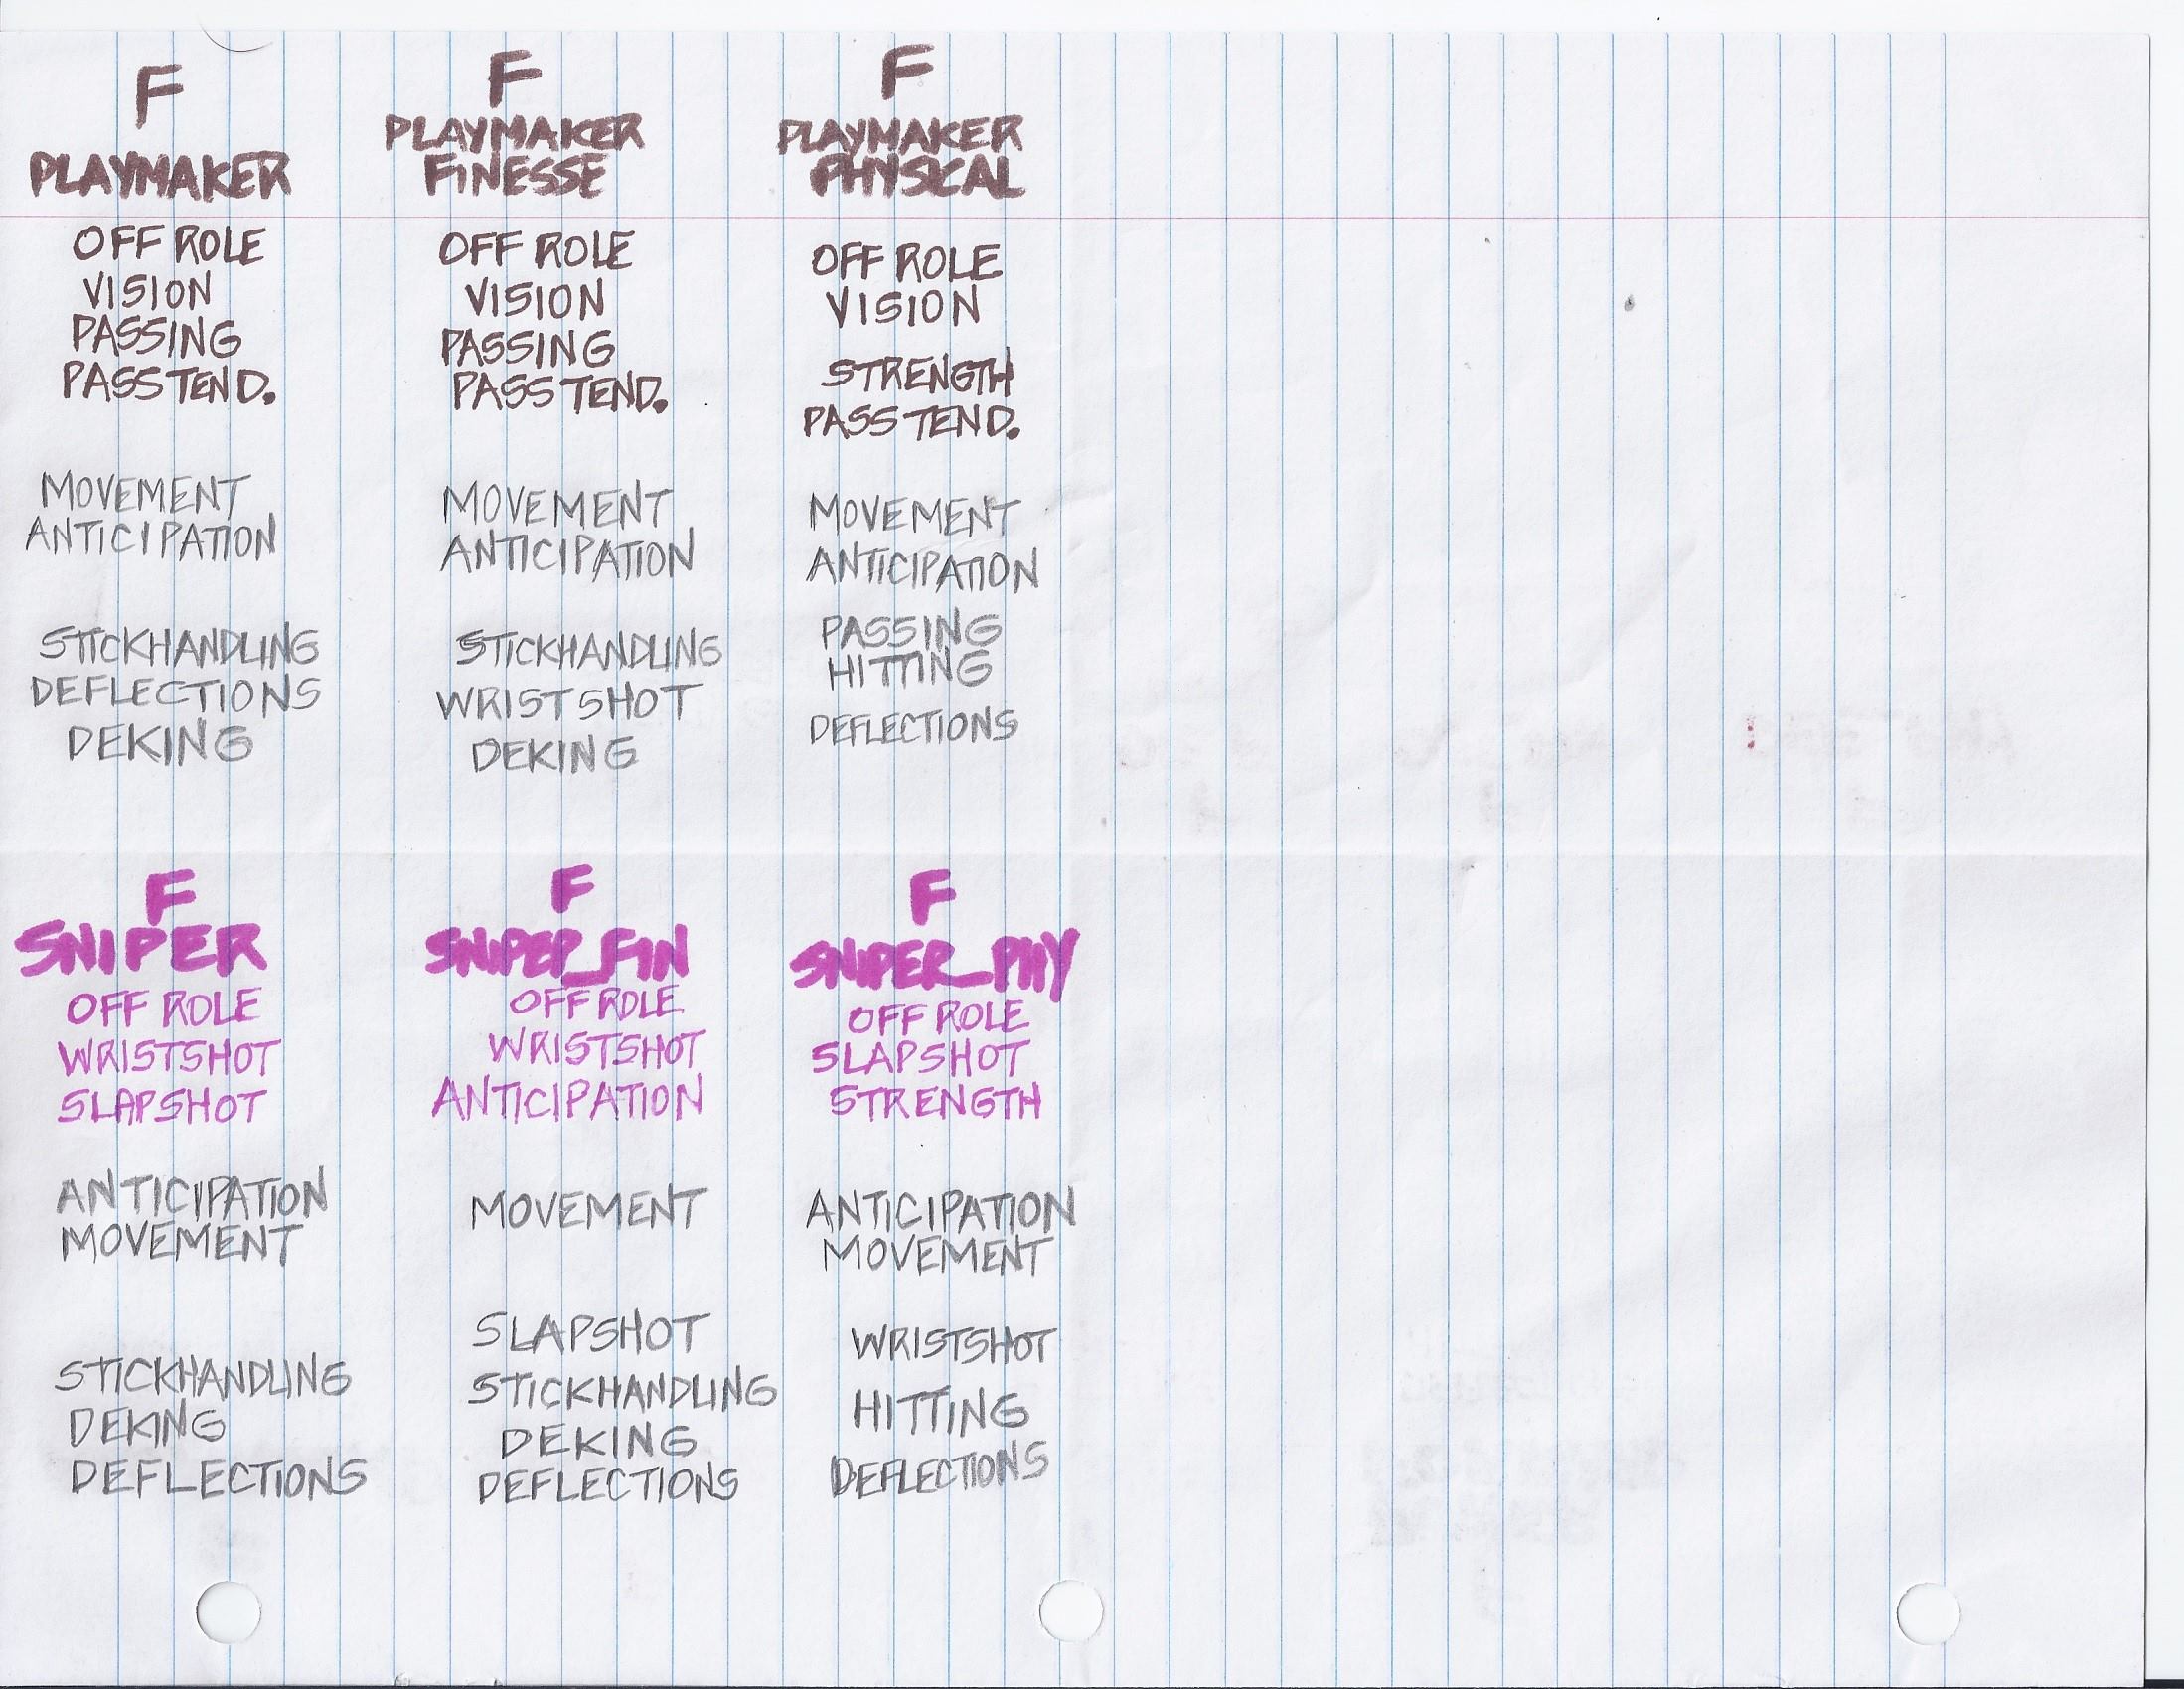 F
PLAYMAKER
OFF ROLE
VISION
PASSING
PASS TEND.
MOVEMENT
ANTICIPATION
STICKHANDLING
DEFLECTIONS
DEKING
F
PLAYMAKER
FINESSE
OFF ROLE
VISION
PASSING
PASS TEND.
MOVEMENT
ANTICIPATION
STICKHANDLING
WRISTSHOT
DEKING
F
PLAYMAKER
PHYSICAL
OFF ROLE
VISION
STRENGTH
PASS TEND.
MOVEMENT
ANTICIPATION
PASSING
HITTING
DEFLECTIONS
F
SNIPER
OFF ROLE
WRISTSHOT
SLAPSHOT
ANTICIPATION
MOVEMENT
STICKHANDLING
DEKING
DEFLECTIONS
F
SNIPER_FIN
OFF ROLE
WRISTSHOT
ANTICIPATION
MOVEMENT
SLAPSHOT
STICKHANDLING
DEKING
DEFLECTIONS
F
SNIPER_PHY
OFF ROLE
SLAPSHOT
STRENGTH
ANTICIPATION
MOVEMENT
WRISTSHOT
HITTING
DEFLECTIONS